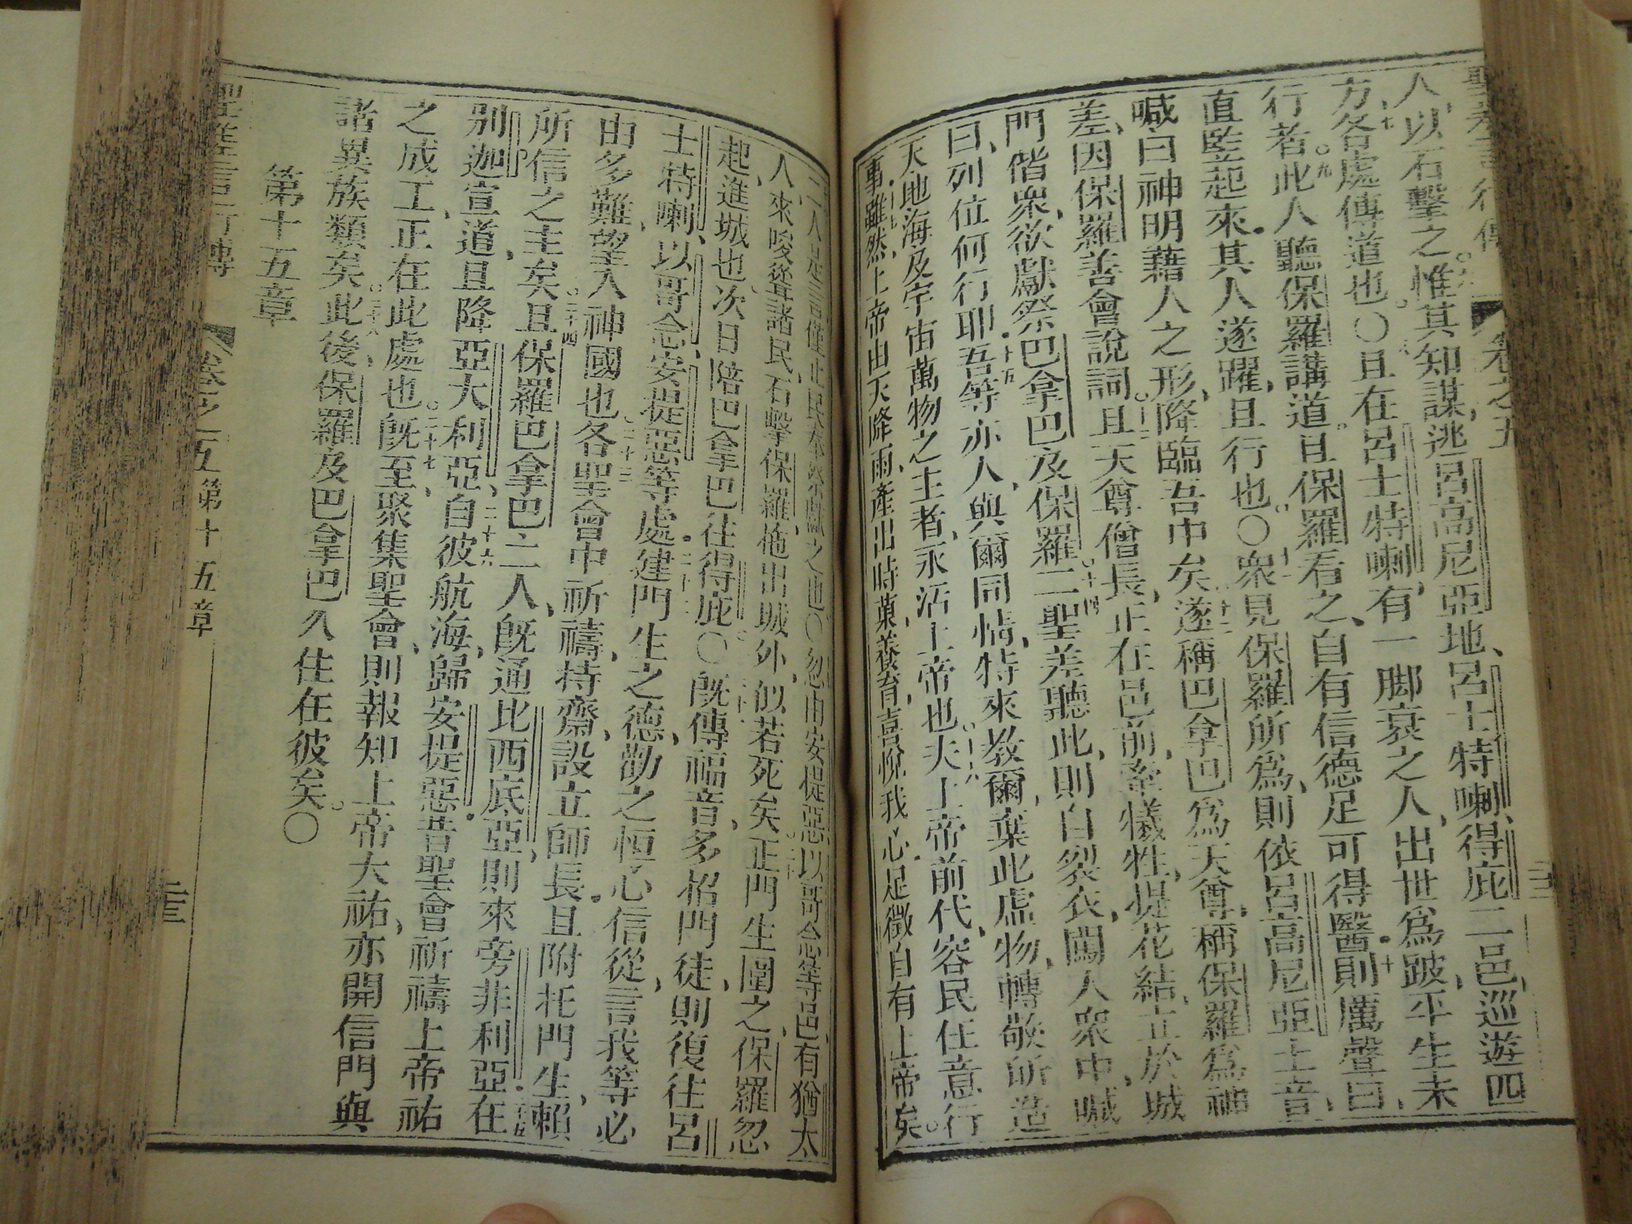 人、以石擊之惟其知謀、逃呂高尼亞地、呂士特喇、得庇二邑、巡遊四
方、各處傳道也〇且在呂士特喇、有一脚衰之人、出世爲跛、平生未
行者、此人聽保羅講道、且保羅看之、自有信德足可得醫、則厲聲曰、
直監起來、其人遂躍、且行也〇衆見保羅所爲、則依呂高尼亞土音、
喊曰、神明藉人之形、降臨吾中矣、遂稱巴拿巴爲天尊、稱保羅爲神
差、因保羅善會說詞、且天尊僧長、正在邑前、牽犧牲、提花結、立於城
門、偕衆、欲獻祭巴拿巴及保羅、二聖差聽此、則自裂衣、闖人衆中、喊
曰、列位何行耶、吾等亦人、與爾同情、特來教爾、棄此虛物、轉敬所造
天地海及宇宙萬物之主者、永活上帝也、夫上帝前代、容民任意行
事、雖然上帝由天降雨、產出時菓、養育喜悅我心、足徵自有上帝矣。
二人是言、僅止民
〇忽由安提惡、以哥念等邑、有猶太
人、來唆聳諸民、石擊保羅、拖出城外、似若死矣、正門生圍之、保羅忽
起、進城也、次日陪巴拿巴往得庇〇既傳福音、多招門徒、則復往呂
士特喇、以哥念、安提惡等處、建門生之德、勸之恒心信從、言我等必
由多難、望入神國也、各聖會中、祈禱、持齋、設立師長、且附托門生、賴
所信之主矣、且保羅巴拿巴二人、既通比西底亞、則來旁非利亞、在
别迦宣道、且降亞大利亞、自彼航海、歸安提惡、昔聖會祈禱上帝祐
之成工、正在此處也、既至聚集聖會、則報知上帝大祐、亦開信門與
諸異族類矣、此後保羅及巴拿巴久住在彼矣。〇
第十五章
聖差言行傳
卷之五第十五章